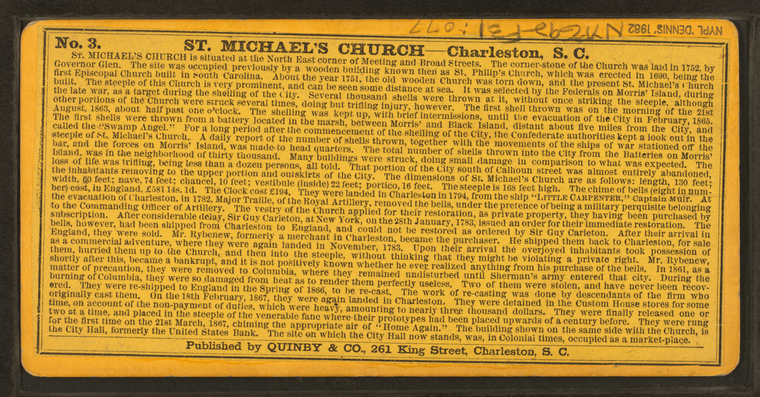 NYPL 'DENNIS' 1982
No. 3. ST. MICHAEL'S CHURCH—Charleston, S. C.
ST. MICHAEL'S CHURCH is situated at the North East corner of Meeting and Broad Streets. The corner-stone of the Church was laid in 1752, by
Governor Glen. The site was occupied previously by a wooden building known then as St. Philip's Church, which was erected in 1690, being the
first Episcopal Church built in South Carolina. About the year 1751, the old wooden Church was torn down, and the present St. Michael's Church
built. The steeple of this Church is very prominent, and can be seen some distance at sea. It was selected by the Federals on Morris' Island, during
the late war, as a target during the shelling of the City. Several thousand shells were thrown at it, without once striking the steeple, although
other portions of the Church were struck several times, doing but trifling injury, however. The first shell thrown was on the morning of the 21st
August, 1863, about half past one o'clock. The shelling was kept up, with brief intermissions, until the evacuation of the City in February, 1865.
The first shells were thrown from a battery located in the marsh, between Morris' and Black Island, distant about five miles from the City, and
called the "Swamp Angel." For a long period after the commencement of the shelling of the City, the Confederate authorities kept a look out in the
steeple of St. Michael's Church. A daily report of the number of shells thrown, together with the movements of the ships of war stationed off the
bar, and the forces on Morris' Island, was made to head quarters. The total number of shells thrown into the City from the Batteries on Morris'
Island, was in the neighborhood of thirty thousand. Many buildings were struck, doing small damage in comparison to what was expected. The
loss of life was trifling, being less than a dozen persons, all told. That portion of the City south of Calhoun street was almost entirely abandoned,
the inhabitants removing to the upper portion and outskirts of the City. The dimensions of St. Michael's Church are as follows: length, 130 feet;
width, 60 feet; nave, 74 feet; chancel, 10 feet; vestibule (inside) 22 feet; portico, 16 feet. The steeple is 168 feet high. The chime of bells (eight in num-
ber) cost, in England, £581 14s. 1d. The Clock cost £194. They were landed in Charleston in 1794, from the ship "LITTLE CARPENTER," Captain Muir. AT
the evacuation of Charleston, in 1782, Major Traille, of the Royal Artillery, removed the bells, under the pretence of being a military perquisite belonging
to the Commanding Officer of Artillery. The vestry of the Church applied for their restoration, as private property, they having been purchased by
subscription. After considerable delay, Sir Guy Carleton, at New York, on the 28th January, 1783, issued an order for their immediate restoration. The
bells, however, had been shipped from Charleston to England, and could not be restored as ordered by Sir Guy Carleton. After their arrival in
England, they were sold. Mr. Rybenew, formerly a merchant in Charleston, became the purchaser. He shipped them back to Charleston, for sale
as a commercial adventure, where they were again landed in November, 1783. Upon their arrival the overjoyed inhabitants took possession of
them, hurried them up to the Church, and then into the steeple, without thinking that they might be violating a private right. Mr. Rybenew,
shortly after this, became a bankrupt, and it is not positively known whether he ever realized anything from his purchase of the bells. In 1861, as a
matter of precaution, they were removed to Columbia, where they remained undisturbed until Sherman's army entered that city. During the
burning of Columbia, they were so damaged from heat as to render them perfectly useless. Two of them were stolen, and have never been recov-
ered. They were re-shipped to England in the Spring of 1866, to be re-cast. The work of re-casting was done by descendants of the firm who
originally cast them. On the 18th February, 1867, they were again landed in Charleston. They were detained in the Custom House stores for some
time, on account of the non-payment of duties, which were heavy, amounting to nearly three thousand dollars. They were finally released one or
two at a time, and placed in the steeple of the venerable fane where their prototypes had been placed upwards of a century before. They were rung
for the first time on the 21st March, 1867, chiming the appropriate air of "Home Again." The building shown on the same side with the Church, is
the City Hall, formerly the United States Bank. The site on which the City Hall now stands, was, in Colonial times, occupied as a market-place.
Published by QUINBY & CO., 261 King Street, Charleston, S. C.